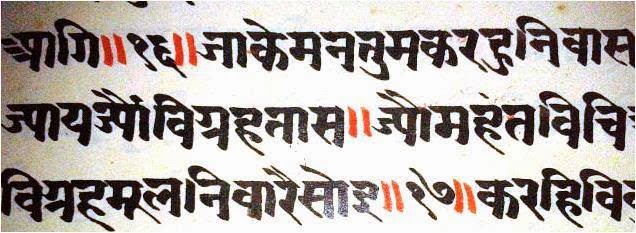 आगि॥१६॥जाकेमनतुमकरहुनिवास
विग्रहतास॥ज्यौमहंत।विचि
विग्रहमूल।निवारैसोइ॥१७॥करहिवि